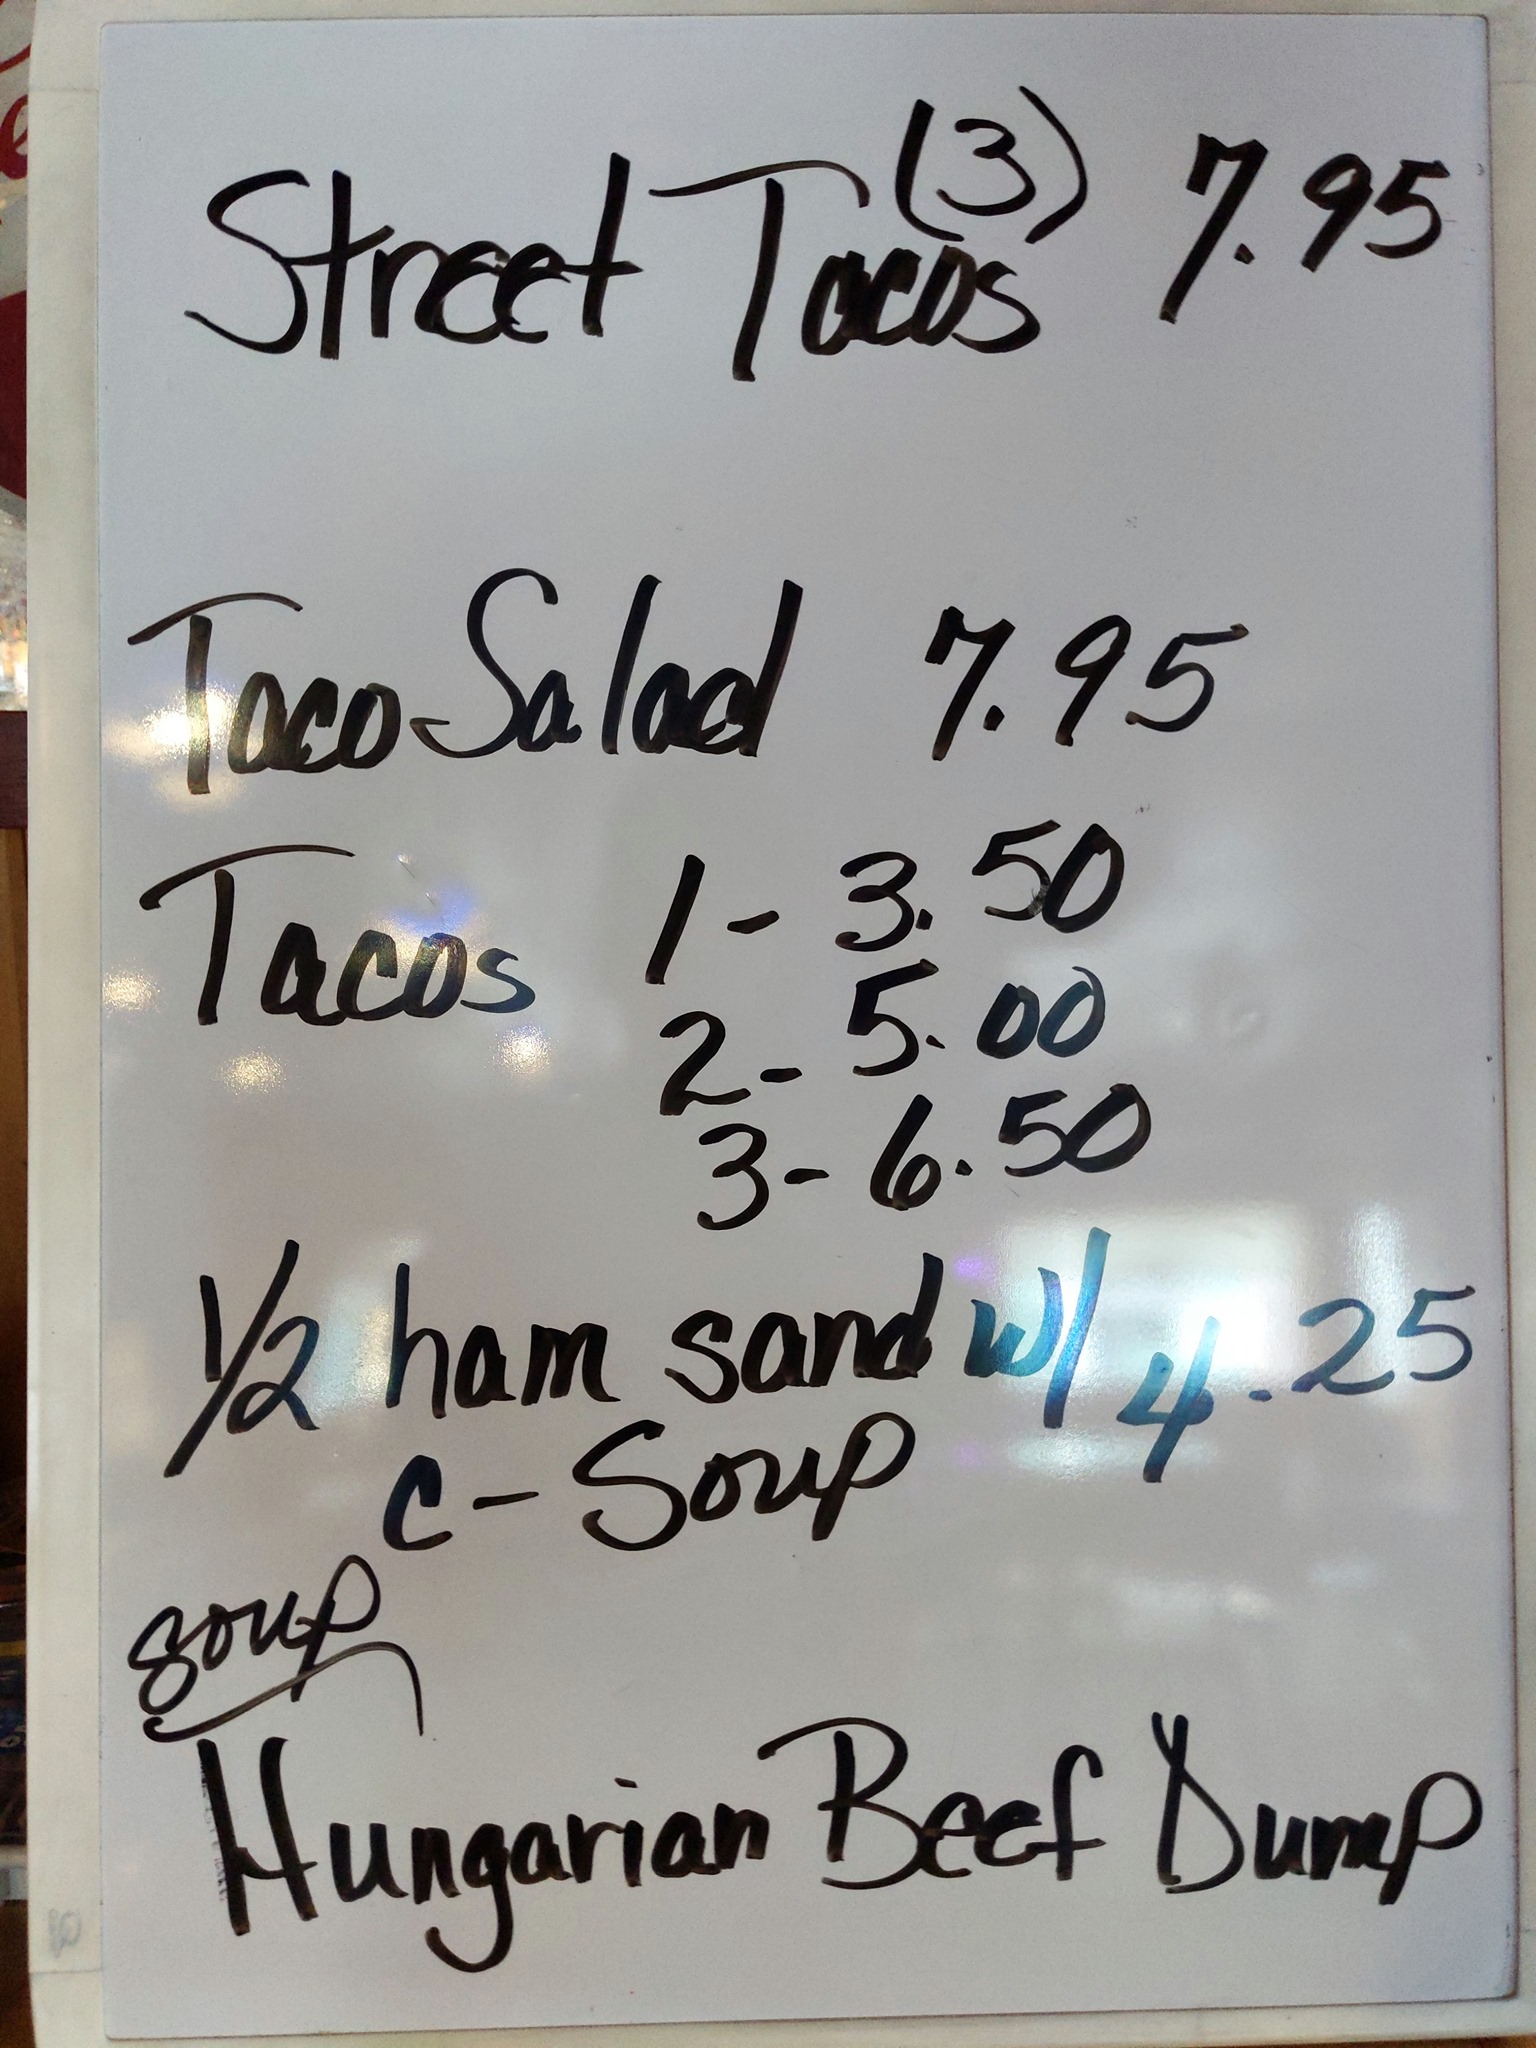 Street Tacos (3) 7.95
Taco Salad 7.95
Tacos 1 - 3.50
2 - 5.00
3 - 6.50
1/2 ham sand w/ 4.25
c - Soup
soup
Hungarian Beef Dump